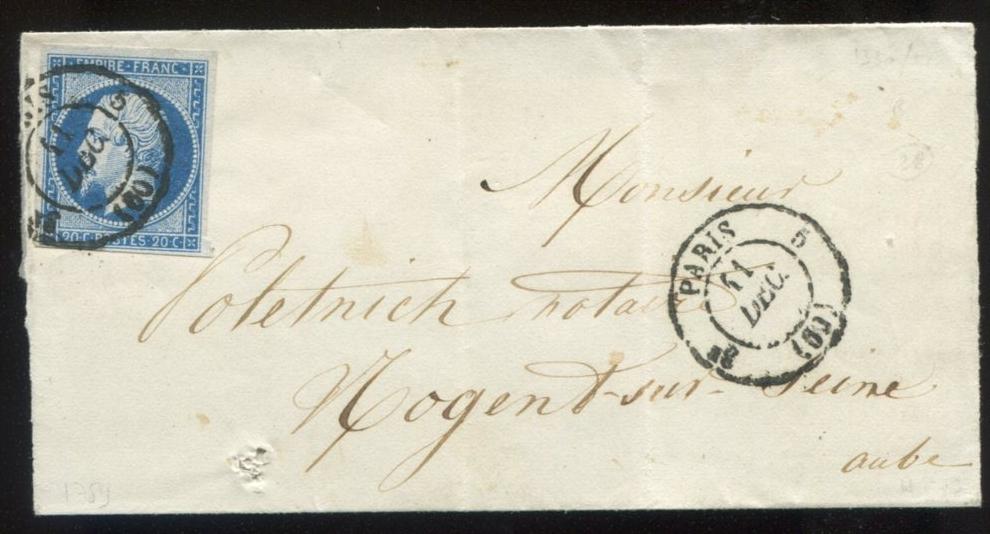 EMPIRE · FRANC ·
20 · C · POSTES · 20 · C ·
11
DEC
5
(60)
Monsieur
Poletnich notaire
Nogent-sur-Seine
aube
PARIS
5
11
DEC.
(60)
1754